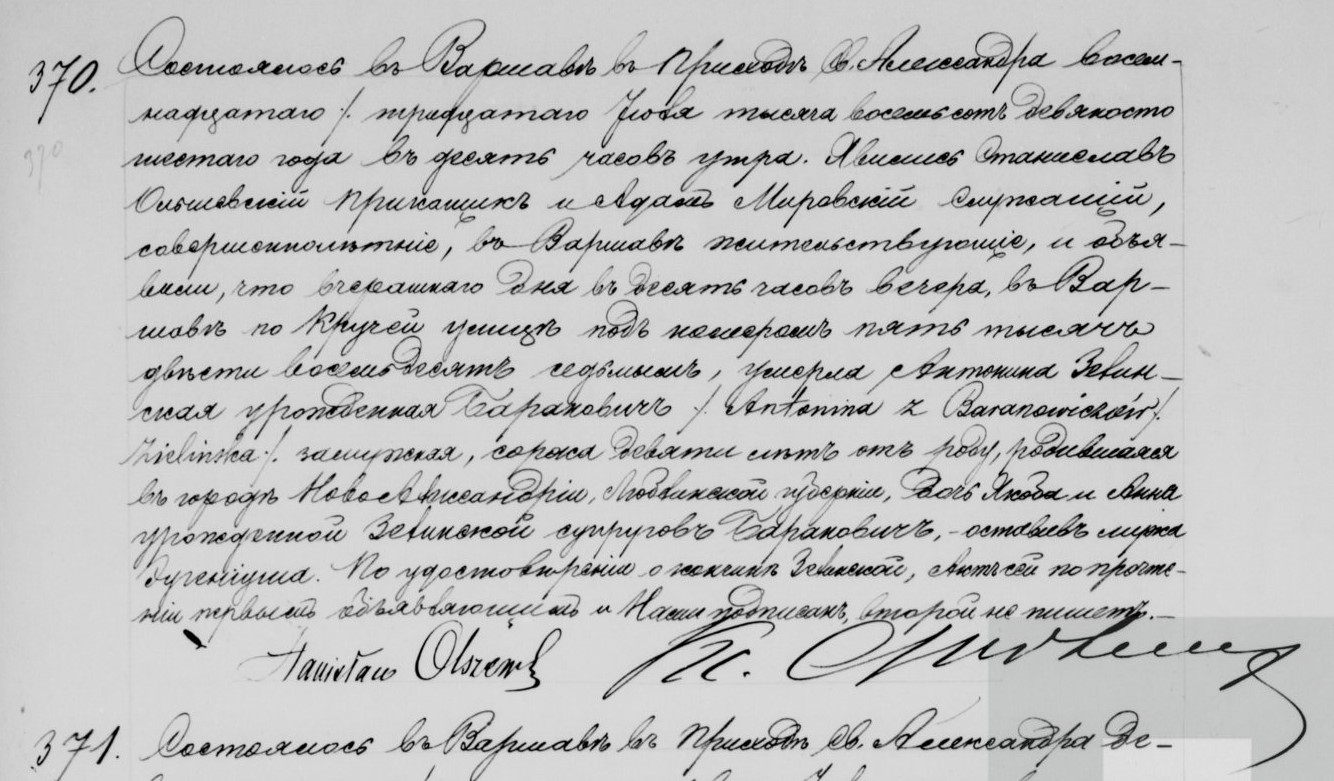 370. Состоялось въ Варшавѣ въ приходѣ Св. Александра восем-
370
надцатаго /. тридцатаго Іюля тысяча восемьсотъ девяносто
шестаго года въ десять часовъ утра. Явились Станиславъ
Ольшевскій прикащикъ и Адамъ Мировскій служащій,
совершеннолѣтніе, въ Варшавѣ жительствующіе, и объя-
вили, что вчерашняго дня въ десять часовъ вечера, въ Вар-
шавѣ по Кручей улицѣ подъ номеромъ пять тысячъ
двѣсти восемьдесятъ седьмымъ, умерла Антонина Зелин-
ская урожденная Баракевичъ /. Antonina z Baranowiczów
Zielińska ./. замужняя, сорока девяти лѣтъ отъ роду, родившаяся
въ городѣ НовоАлександріи, Люблинской губерніи, дочь Якова и Анна
урожденной Зелинской супруговъ Барановичъ, - оставивъ мужа
Еугеніуша. По удостовѣреніи о кончинѣ Зелинской, Актъ сей по прочте-
ніи первымъ объявляющимъ и Нами подписанъ, второй не пишетъ. -
Stanisław Olszews
Кс.
371. Состоялось въ Варшавѣ въ приходѣ Св. Александра де-